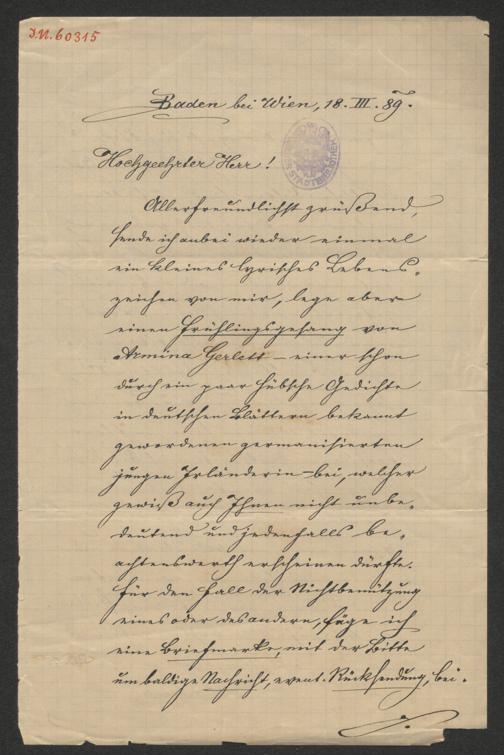 J.N. 60315
Baden bei Wien, 18. III. 89.
Hochgeehrter Herr!
Allerfreundlichst grüßend,
sende ich anbei wieder einmal
ein kleines lyrisches Lebens-
zeichen von mir, lege aber
einen Frühlingsgesang von
Armina Gerlett – einer schon
durch ein paar hübsche Gedichte
in deutschen Blättern bekannt
gewordenen germanisierten
jungen Irländerin – bei, welcher
gewiß auch Ihnen nicht unbe-
deutend und jedenfalls be-
achtenswerth erscheinen dürfte.
Für den Fall der Nichtbenützung
eines oder des andern, füge ich
eine Briefmarke, mit der Bitte
um baldige Nachricht, event. Rücksendung, bei.